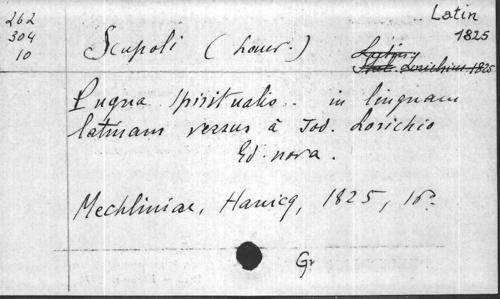 262
304
10
Latin
1825
Scupoli (Laur.)
Lorichius 1825
Pugna spiritualis .. in linguam
latinam versus à Jod. Lorichio
Ed. nova.
Mechliniae, Hanicq, 1825, 16º
Gr